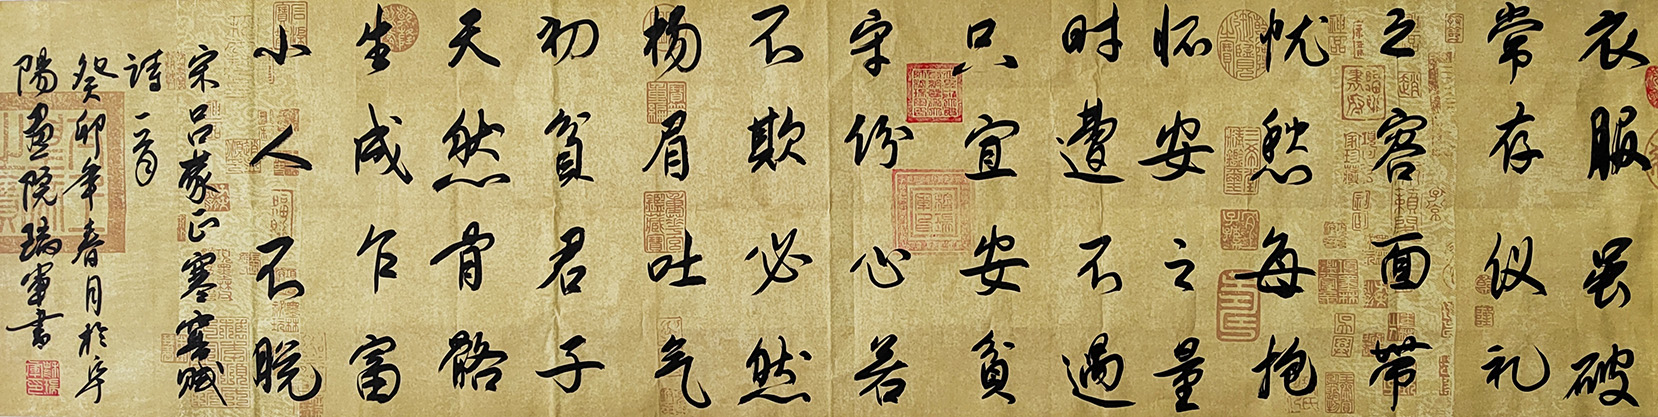 衣服虽破
常存仪礼
之容面带
忧愁每抱
怀安之量
时遭不遇
只宜安贫
守份心若
不欺必然
杨眉吐气
初贫君子
天然骨骼
生成乍富
小人不脱
宋吕蒙正寒窑赋
詩一首
癸卯年春月於平
陽畫院瑞軍書